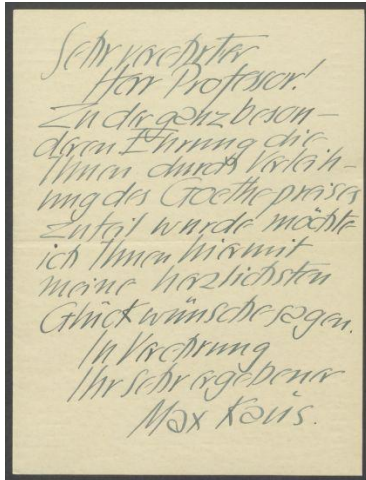 Sehr verehrter
Herr Professor!
Zu der ganz beson-
deren Ehrung die
Ihnen durch Verleih-
ung des Goethepreises
Zuteil wurde möchte
ich Ihnen hiermit
meine herzlichsten
Glückwünsche sagen.
In Verehrung
Ihr sehr ergebener
Max Kaus.